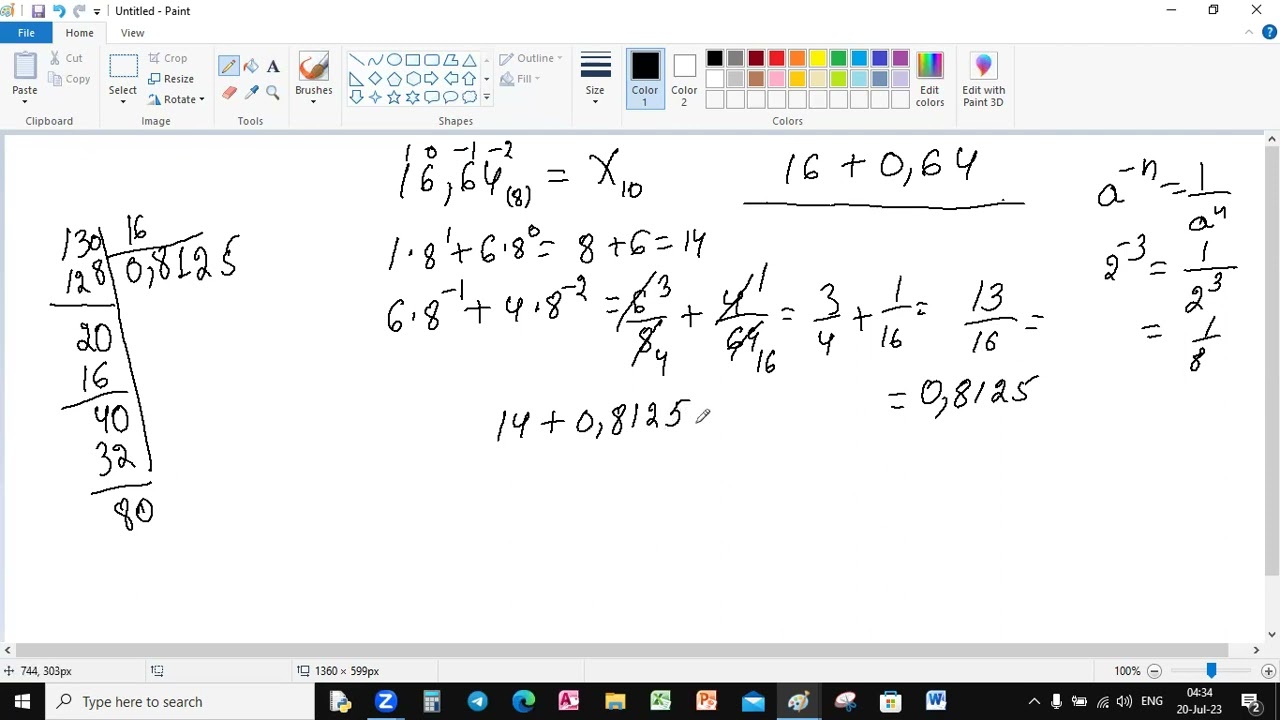 Untitled - Paint
File Home View
Paste Cut Copy Clipboard
Select Crop Resize Rotate Image
Tools
Brushes
Shapes Outline Fill
Size
Color 1 Color 2 Edit colors Colors
Edit with Paint 3D
1 0 -1 -2
16,64(8) = X10
16 + 0,64
a^-n = 1/a^n
1·8^1 + 6·8^0 = 8 + 6 = 14
2^-3 = 1/2^3
= 1/8
6·8^-1 + 4·8^-2 = 6/8 3/4 + 4/64 1/16 = 3/4 + 1/16 = 13/16 =
= 0,8125
14 + 0,8125
130 16
128 0,8125
20
16
40
32
80
744, 303px
1360 × 599px
100%
Type here to search
ENG
04:34
20-Jul-23
2